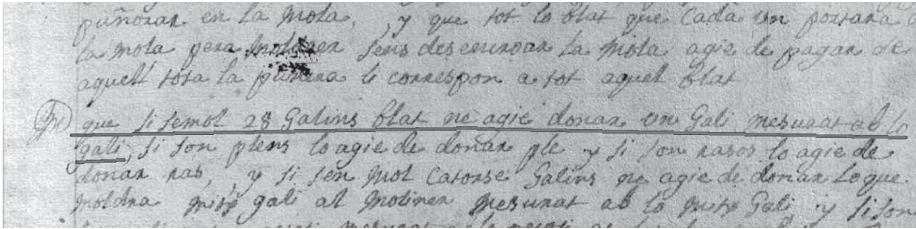 puñorar en la mola, y que tot lo blat que cada un portara
la mola pera moldrer sens descuidar la mola agie de pagar de
aquell tota la puñera li correspon a tot aquell blat
que si semol 28 Galins blat ne agie donar un Gali mesurat ab lo
gali, si son plens lo agie de donar ple y si son rasos lo agie de
donar ras, y si sen mol catorse Galins ne agie de donar lo que
moldra mitx gali al moliner mesurat ab lo mitx Gali y si son